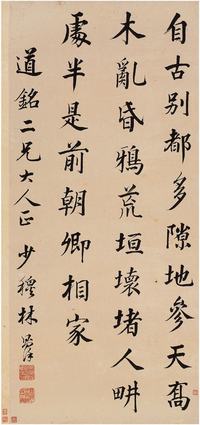 自古别都多隙地參天髙
木亂昏鴉荒垣壞堵人畊
處半是前朝卿相家
道銘二兄大人正 少穆林則徐